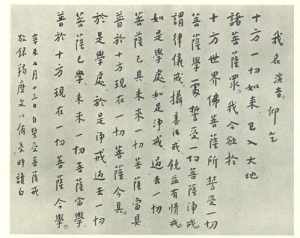 我名演音仰乞
十方一切如来已入大地
諸菩薩眾我今欲於
十方世界佛菩薩所誓受一切
菩薩學處誓受一切菩薩淨戒
謂律儀戒攝善法戒饒益有情戒
如是學處如是淨戒過去一切
菩薩已具未來一切菩薩當具
普於十方現在一切菩薩今具
於是學處於是淨戒過去一切
菩薩已學未來一切菩薩當學
普於十方現在一切菩薩今學